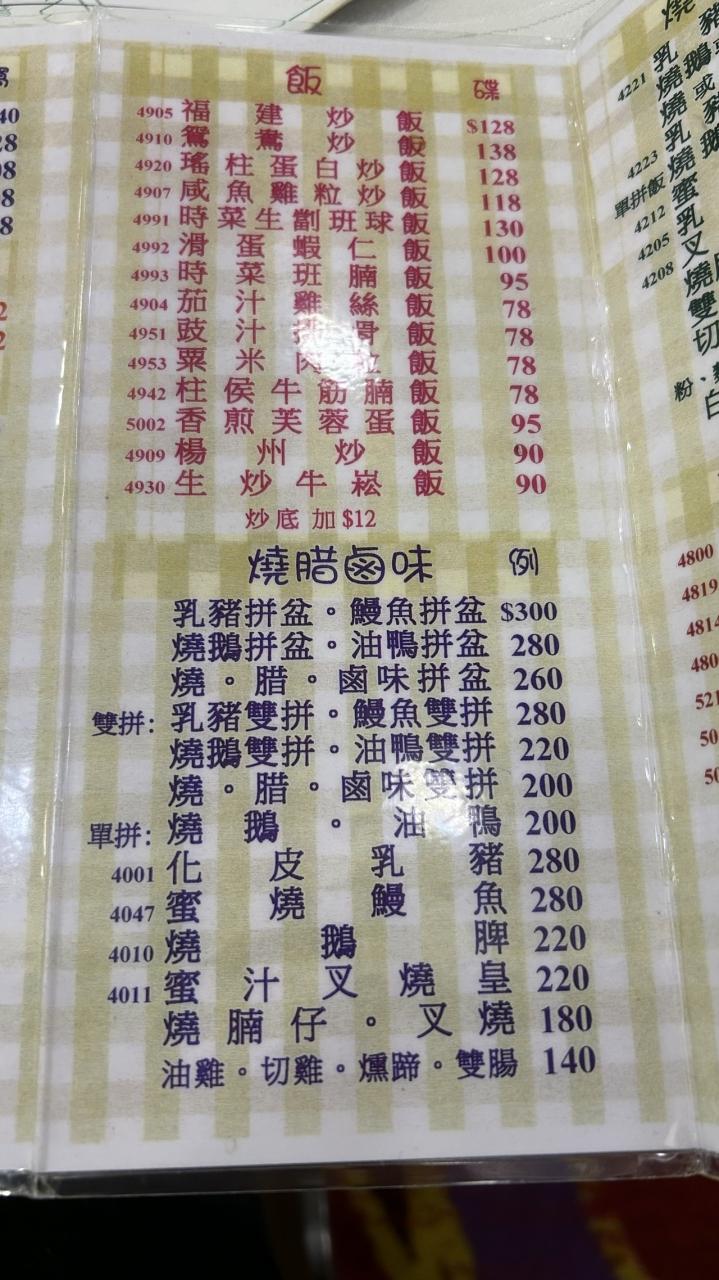 飯 碟
4905 福建炒飯 $128
4910 鴛鴦炒飯 138
4920 瑤柱蛋白炒飯 128
4907 咸魚雞粒炒飯 118
4991 時菜生劏班球飯 130
4992 滑蛋蝦仁飯 100
4993 時菜班腩飯 95
4904 茄汁雞絲飯 78
4951 豉汁排骨飯 78
4953 粟米肉粒飯 78
4942 柱侯牛筋腩飯 78
5002 香煎芙蓉蛋飯 95
4909 楊州炒飯 90
4930 生炒牛崧飯 90
炒底加$12
燒腊鹵味 例
乳豬拼盆。鰻魚拼盆 $300
燒鵝拼盆。油鴨拼盆 280
燒。腊。鹵味拼盆 260
雙拼: 乳豬雙拼。鰻魚雙拼 280
燒鵝雙拼。油鴨雙拼 220
燒。腊。鹵味雙拼 200
單拼: 燒鵝。油鴨 200
4001 化皮乳豬 280
4047 蜜燒鰻魚 280
4010 燒鵝脾 220
4011 蜜汁叉燒皇 220
燒腩仔。叉燒 180
油雞。切雞。燻蹄。雙腸 140
4221
4223
單拼飯
4212
4205
4208
粉、
4800
4819